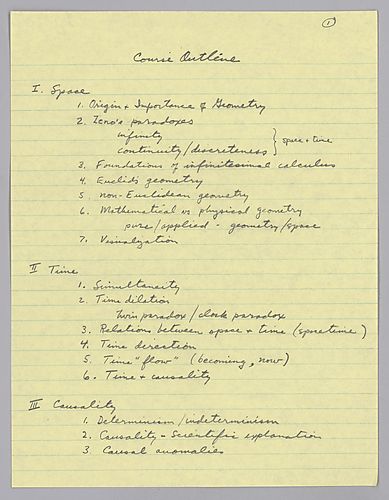 1
Course Outline
I. Space
1. Origin + Importance of Geometry
2. Zeno's paradoxes
infinity
continuity/discreteness } space + time
3. Foundations of infinitesimal calculus
4. Euclid's geometry
5. non-Euclidean geometry
6. Mathematical vs physical geometry
pure/applied - geometry/space
7. Visualization
II Time
1. Simultaneity
2. Time dilation
Twin paradox/clock paradox
3. Relations between space + time (spacetime)
4. Time direction
5. Time "flow" (becoming, now)
6. Time + causality
III Causality
1. Determinism/indeterminism
2. Causality - Scientific explanation
3. Causal anomalies